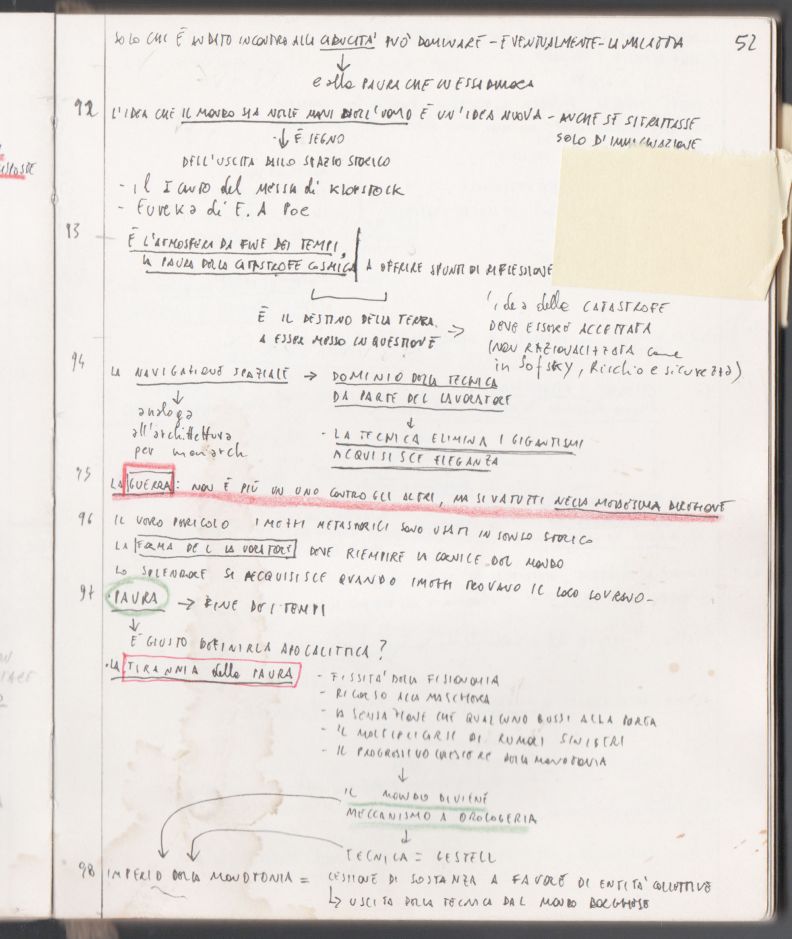 52
SOLO CHI È ANDATO INCONTRO ALLA CADUCITÀ PUÒ DOMINARE - EVENTUALMENTE - LA MALATTIA
↓
e alla PAURA CHE IN ESSA DIMORA
92 L'IDEA CHE IL MONDO SIA NELLE MANI DELL'UOMO È UN'IDEA NUOVA - ANCHE SE SI TRATTASSE
SOLO D'IMMAGINAZIONE
↓ È SEGNO
DELL'USCITA DALLO SPAZIO STORICO
- il I CANTO del MESSIA di KLOPSTOCK
- Eureka di E. A Poe
93 È L'ATMOSFERA DA FINE DEI TEMPI,
LA PAURA DELLA CATASTROFE COSMICA A OFFRIRE SPUNTI DI RIFLESSIONE
È IL DESTINO DELLA TERRA
A ESSER MESSO IN QUESTIONE →
l'idea della CATASTROFE
DEVE ESSERE ACCETTATA
(NON RAZIONALIZZATA come
in Sofsky, Rischio e sicurezza)
94 LA NAVIGAZIONE SPAZIALE → DOMINIO DELLA TECNICA
DA PARTE DEL LAVORATORE
↓
analoga
all'architettura
per monarch
↓
- LA TECNICA ELIMINA I GIGANTISMI
ACQUISISCE ELEGANZA
95 LA GUERRA: NON È PIÙ UN UNO CONTRO GLI ALTRI, MA SI VA TUTTI NELLA MEDESIMA DIREZIONE
96 IL VERO PERICOLO I MEZZI METASTORICI SONO USATI IN SENSO STORICO
LA FORMA DEL LAVORATORE DEVE RIEMPIRE LA CORNICE DEL MONDO
LO SPLENDORE SI ACQUISISCE QUANDO I MEZZI TROVANO IL LORO SOVRANO -
97 PAURA → FINE DEI TEMPI
↓
È GIUSTO DEFINIRLA APOCALITTICA?
· LA TIRANNIA della PAURA
- FISSITÀ DELLA FISIONOMIA
- RICORSO ALLA MASCHERA
- LA SENSAZIONE CHE QUALCUNO BUSSI ALLA PORTA
- IL MOLTIPLICARSI DI RUMORI SINISTRI
- IL PROGRESSIVO CRESCERE DELLA MONOTONIA
↓
IL MONDO DIVIENE
MECCANISMO A OROLOGERIA
↓
TECNICA = GESTELL
98 IMPERIO DELLA MONOTONIA = CESSIONE DI SOSTANZA A FAVORE DI ENTITÀ COLLETTIVE
↳ USCITA DELLA TECNICA DAL MONDO BORGHESE